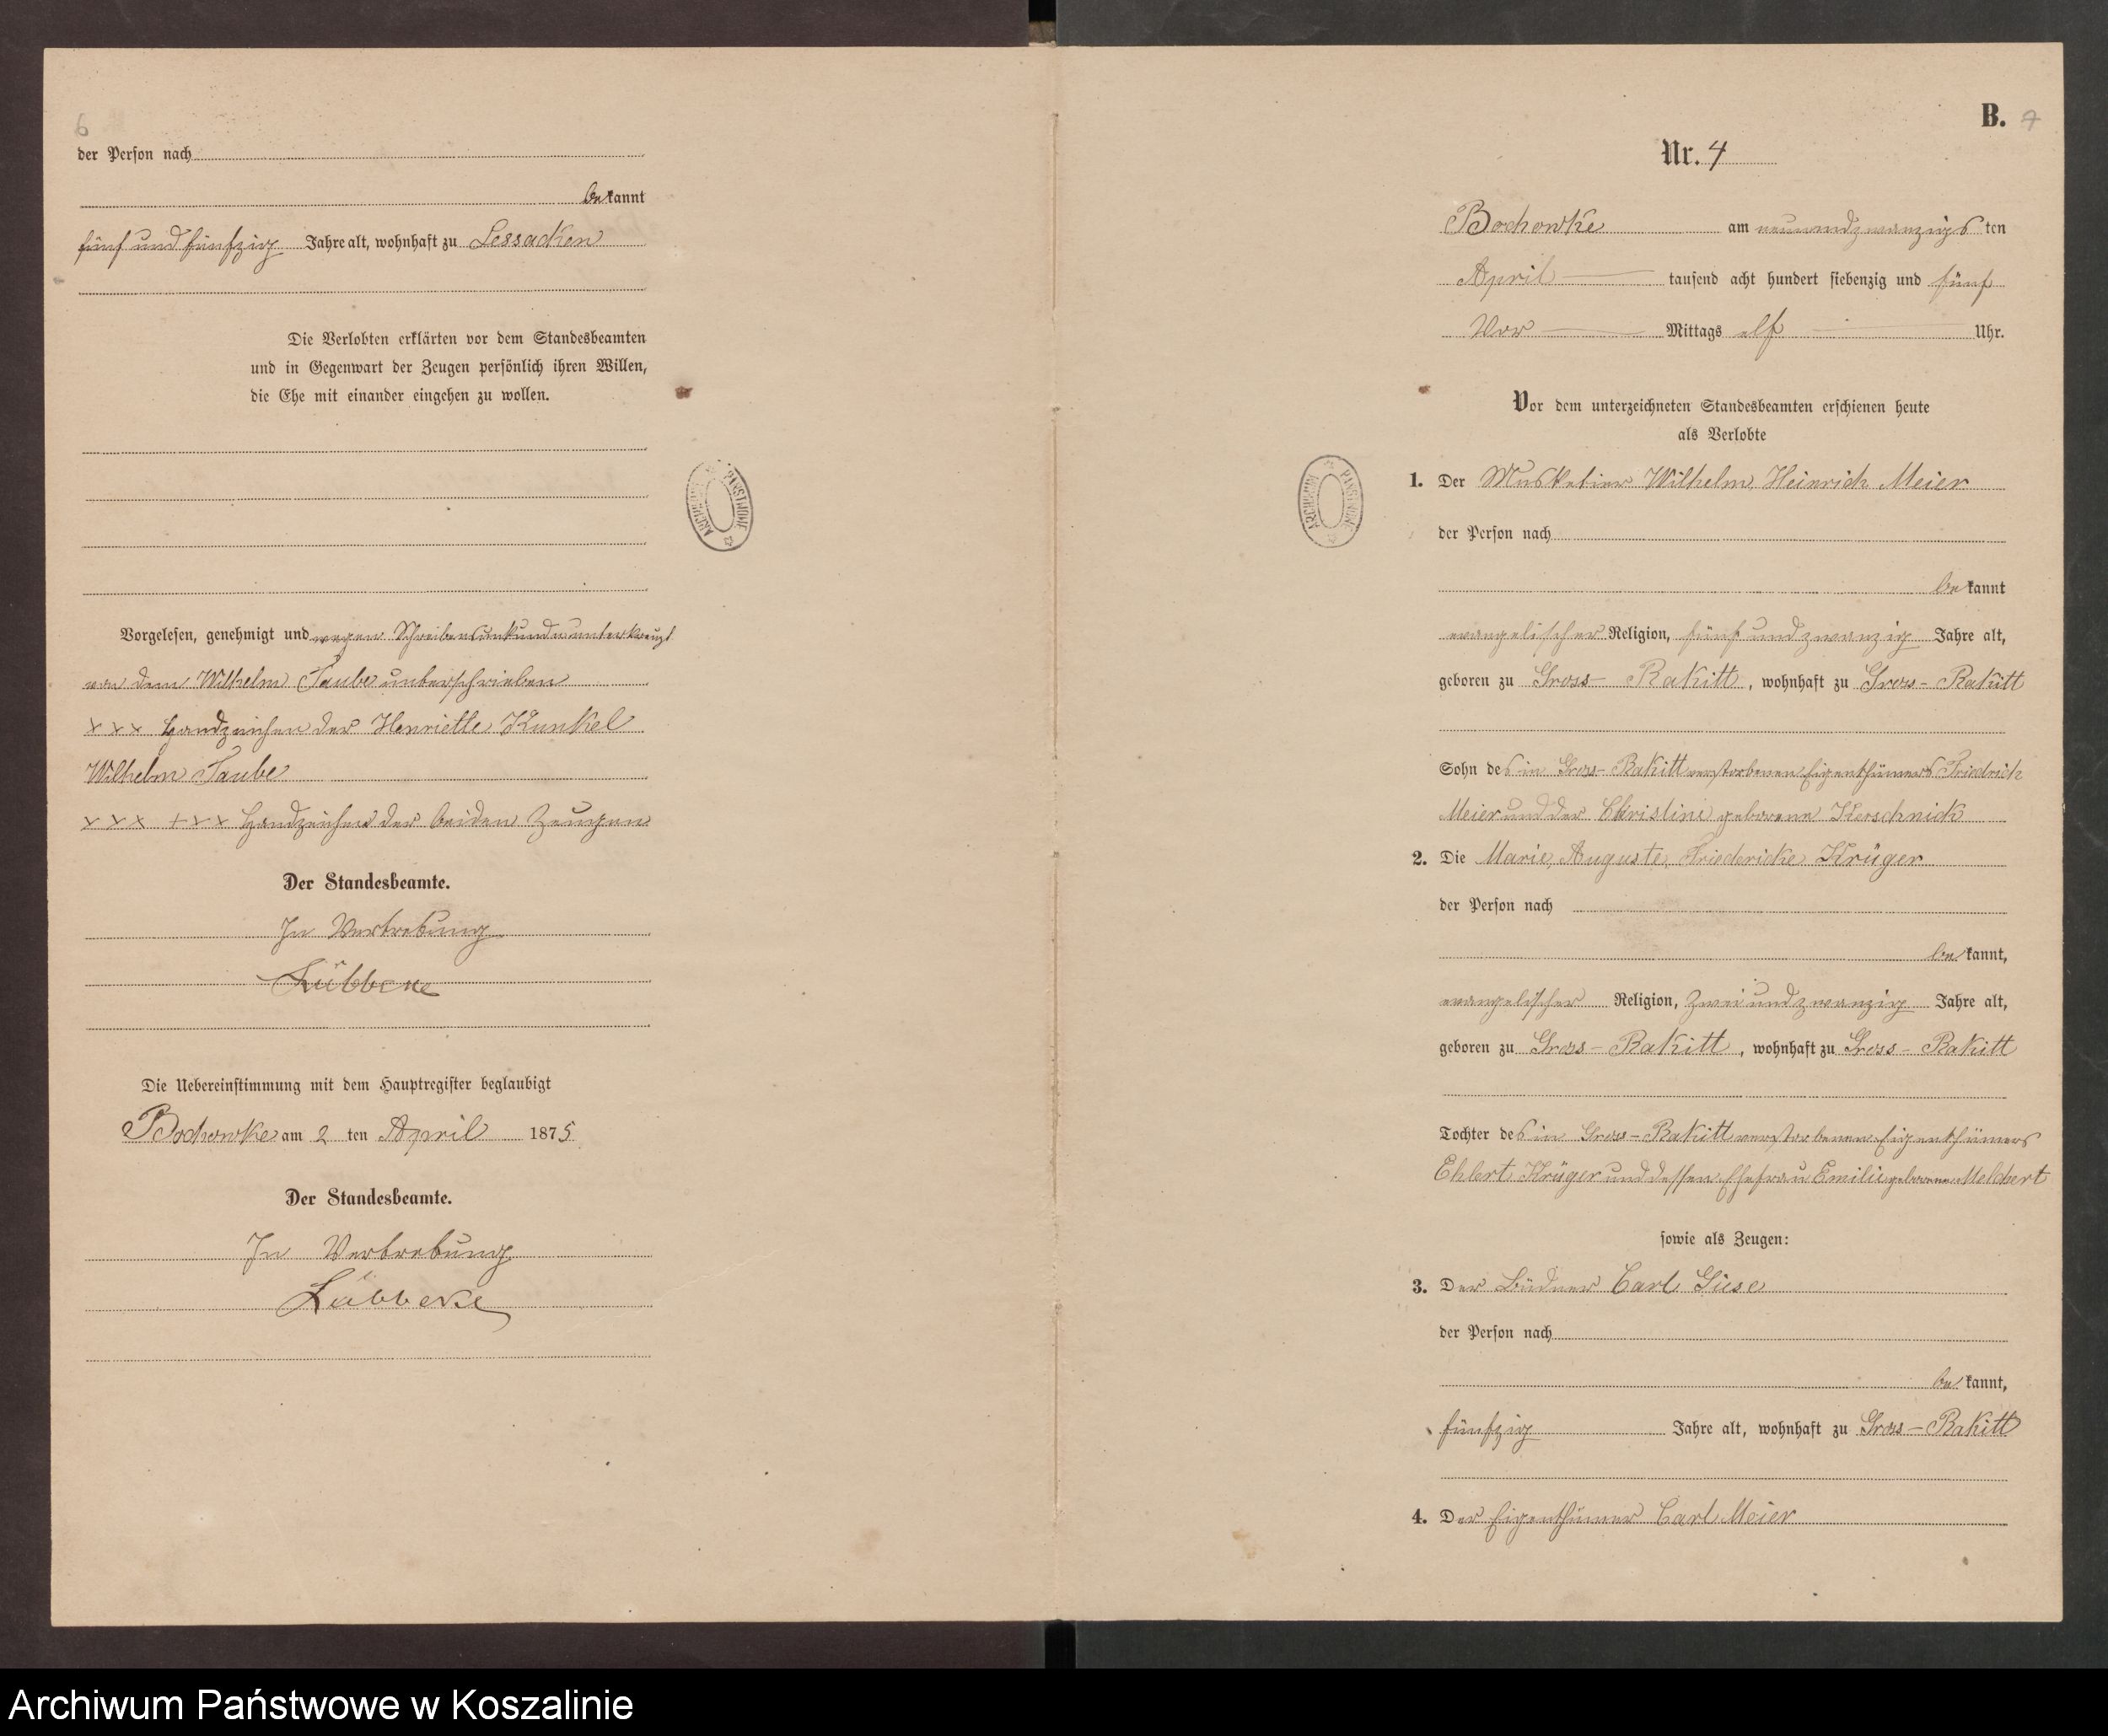 6
der Person nach
bekannt
fünf und fünfzig Jahre alt, wohnhaft zu Lessacken
Die Verlobten erklärten vor dem Standesbeamten
und in Gegenwart der Zeugen persönlich ihren Willen,
die Ehe mit einander eingehen zu wollen.
Vorgelesen, genehmigt und wegen Schreibensunkunde unterkreuzt
von dem Wilhelm Taube unterschrieben
××× Handzeichen der Henriette Kunkel
Wilhelm Taube
××× +×× Handzeichen der beiden Zeugen
Der Standesbeamte.
In Vertretung
Lübbecke
Die Uebereinstimmung mit dem Hauptregister beglaubigt
Bochowke am 2 ten April 1875
Der Standesbeamte.
In Vertretung
Lübbecke
ARCHIWUM PAŃSTWOWE
B. 7
Nr. 4
Bochowke am neunundzwanzigsten
April tausend acht hundert siebenzig und fünf
Vor Mittags elf Uhr.
Vor dem unterzeichneten Standesbeamten erschienen heute
als Verlobte
ARCHIWUM PAŃSTWOWE
1. Der Musketier Wilhelm Heinrich Meier
der Person nach
bekannt
evangelischer Religion, fünf und zwanzig Jahre alt,
geboren zu Gross-Rakitt, wohnhaft zu Gross-Rakitt
Sohn des in Gross-Rakitt verstorbenen Eigenthümers Friedrich
Meier und der Christine geborene Kerschnick
2. Die Marie Auguste Friedericke Krüger
der Person nach
bekannt,
evangelischer Religion, zwei und zwanzig Jahre alt,
geboren zu Gross-Rakitt, wohnhaft zu Gross-Rakitt
Tochter des in Gross-Rakitt verstorbenen Eigenthümers
Ehlert Krüger und dessen Ehefrau Emilie geborene Melchert
sowie als Zeugen:
3. Der Büdner Carl Giese
der Person nach
bekannt,
fünfzig Jahre alt, wohnhaft zu Gross-Rakitt
4. Der Eigenthümer Carl Meier
Archiwum Państwowe w Koszalinie